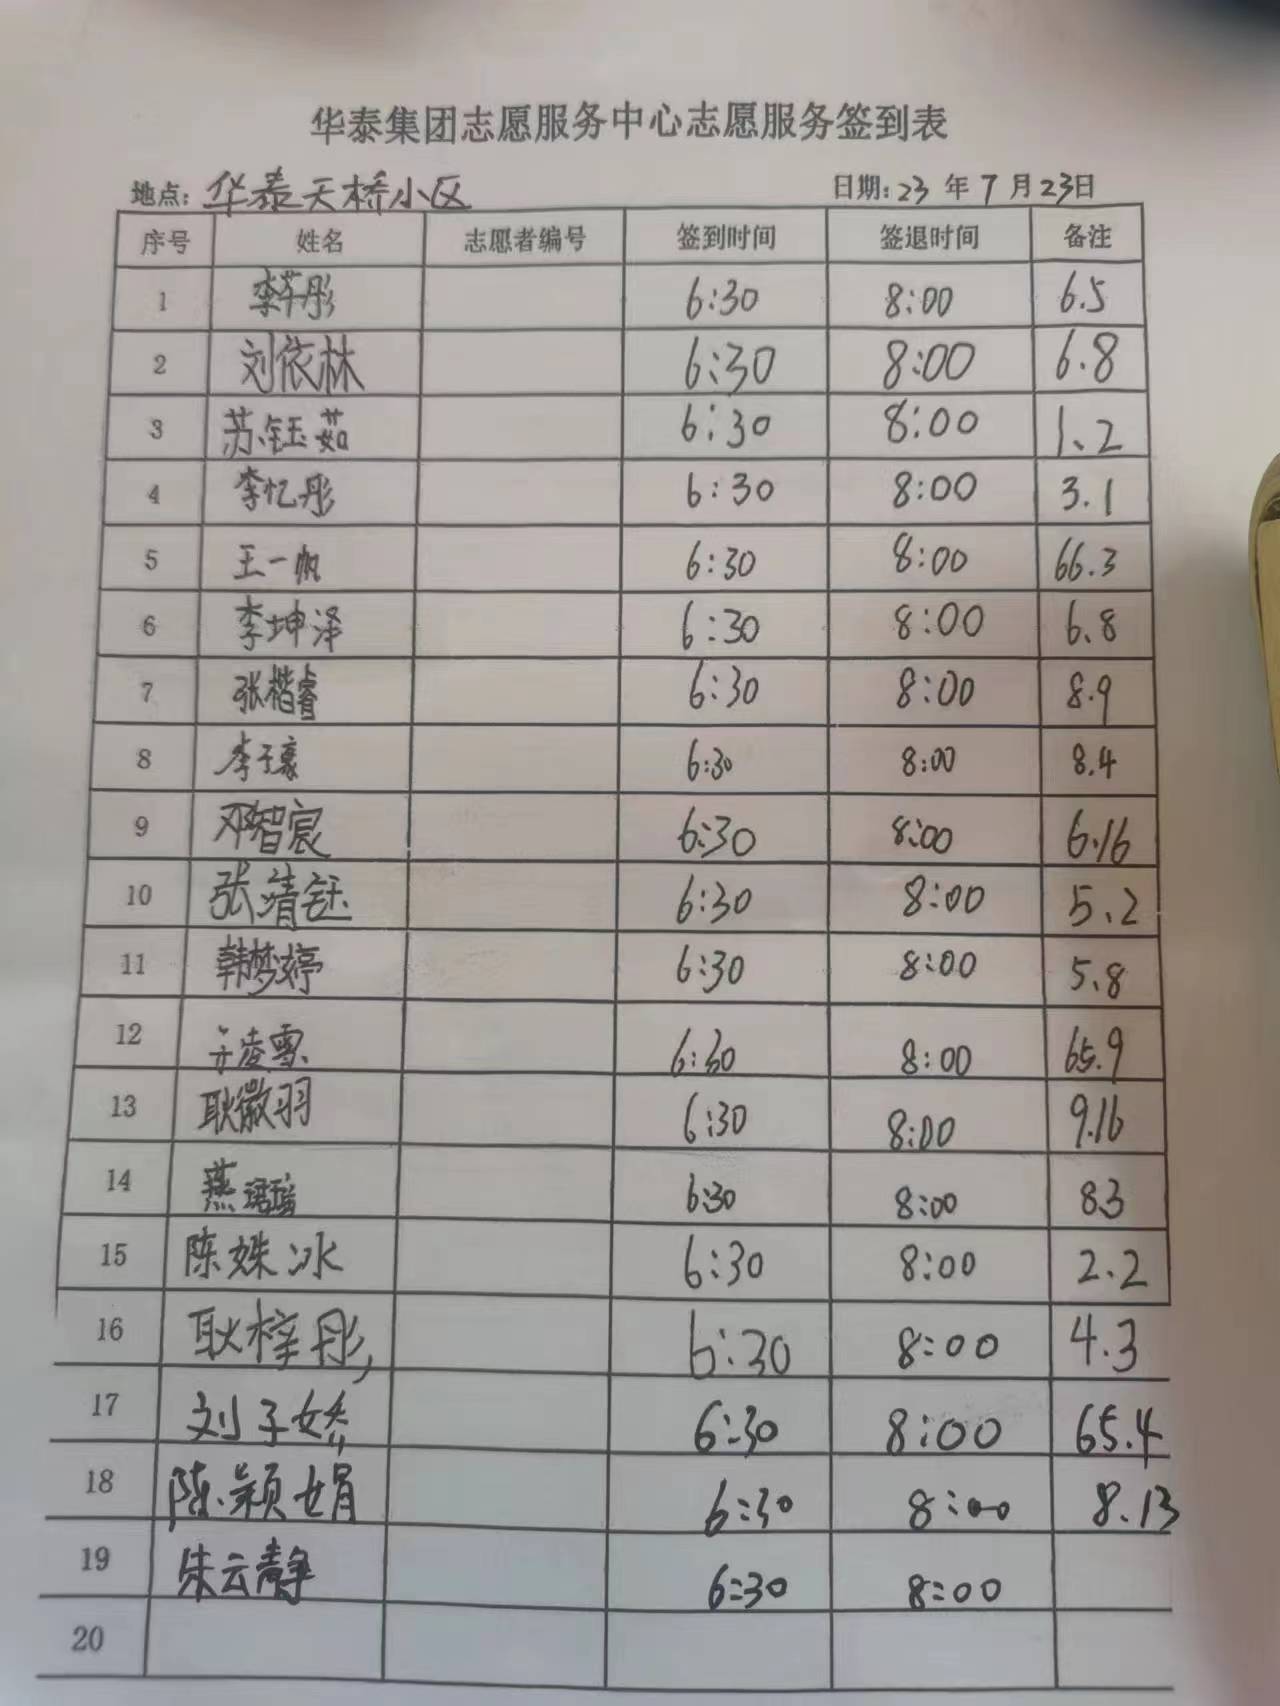 华泰集团志愿服务中心志愿服务签到表
地点: 华泰天桥小区 日期: 23 年 7 月 23日
序号 姓名 志愿者编号 签到时间 签退时间 备注
1 李芊彤 6:30 8:00 6.5
2 刘依林 6:30 8:00 6.8
3 苏钰茹 6:30 8:00 1.2
4 李忆彤 6:30 8:00 3.1
5 王一帆 6:30 8:00 66.3
6 李坤泽 6:30 8:00 6.8
7 张楷睿 6:30 8:00 8.9
8 李子豪 6:30 8:00 8.4
9 邓智宸 6:30 8:00 6.16
10 张靖钰 6:30 8:00 5.2
11 韩梦婷 6:30 8:00 5.8
12 凌雪 6:30 8:00 65.9
13 耿微羽 6:30 8:00 9.16
14 燕珺瑶 6:30 8:00 8.3
15 陈姝冰 6:30 8:00 2.2
16 耿梓彤 6:30 8:00 4.3
17 刘子娇 6:30 8:00 65.4
18 陈颖娟 6:30 8:00 8.13
19 朱云静 6:30 8:00
20